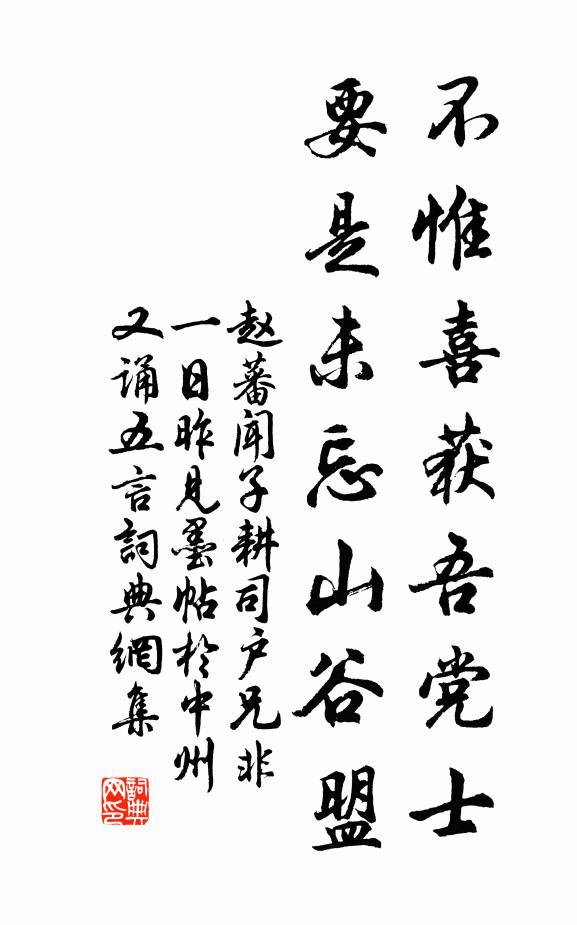 不惟喜获吾党士
要是未忘山谷盟
赵蕃闻子耕司户兄非
一日昨见墨帖於中州
又诵五言詞典網集
詞典网印